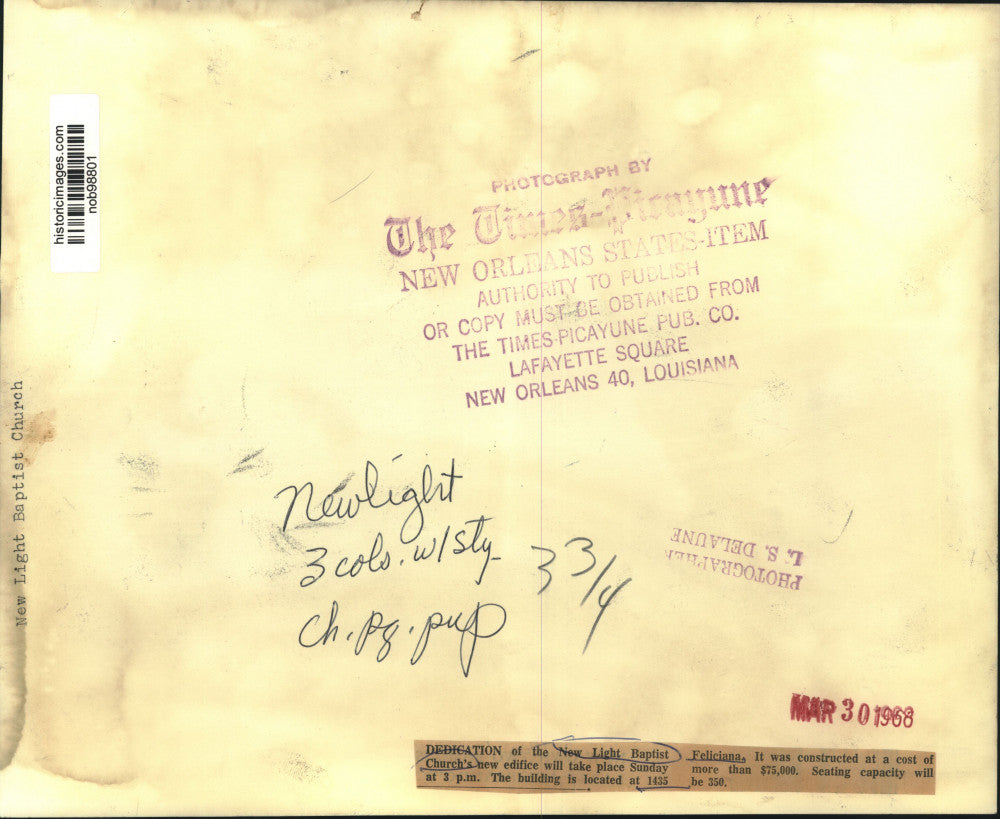 historicimages.com
nob98801
New Light Baptist Church
PHOTOGRAPH BY
The Times-Picayune
NEW ORLEANS STATES-ITEM
AUTHORITY TO PUBLISH
OR COPY MUST BE OBTAINED FROM
THE TIMES-PICAYUNE PUB. CO.
LAFAYETTE SQUARE
NEW ORLEANS 40, LOUISIANA
Newlight
3 cols. w/sty
ch. pg. pup
3 3/4
PHOTOGRAPHER
L. S. DELAUNE
MAR 30 1968
DEDICATION of the New Light Baptist
Church's new edifice will take place Sunday
at 3 p.m. The building is located at 1435
Feliciana. It was constructed at a cost of
more than $75,000. Seating capacity will
be 350.